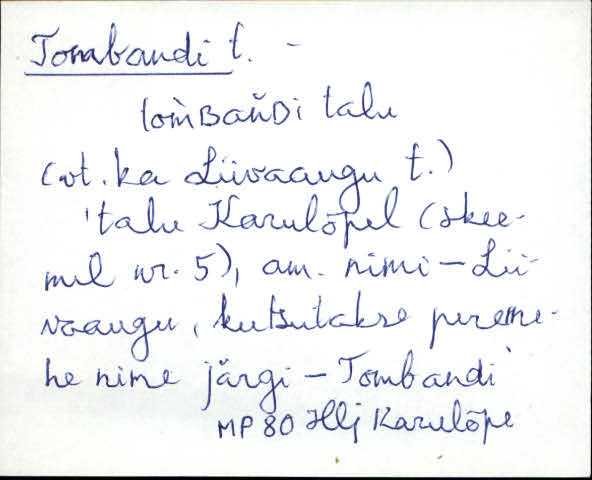 Tombandi t. -
tom̀ʙaňᴅi talu
(vt. ka Liivaaugu t.)
'talu Karulõpel (skee-
mil nr. 5), am. nimi - Lii-
vaaugu, kutsutakse pereme-
he nime järgi - Tombandi'
MP 80 Hlj Karulõpe